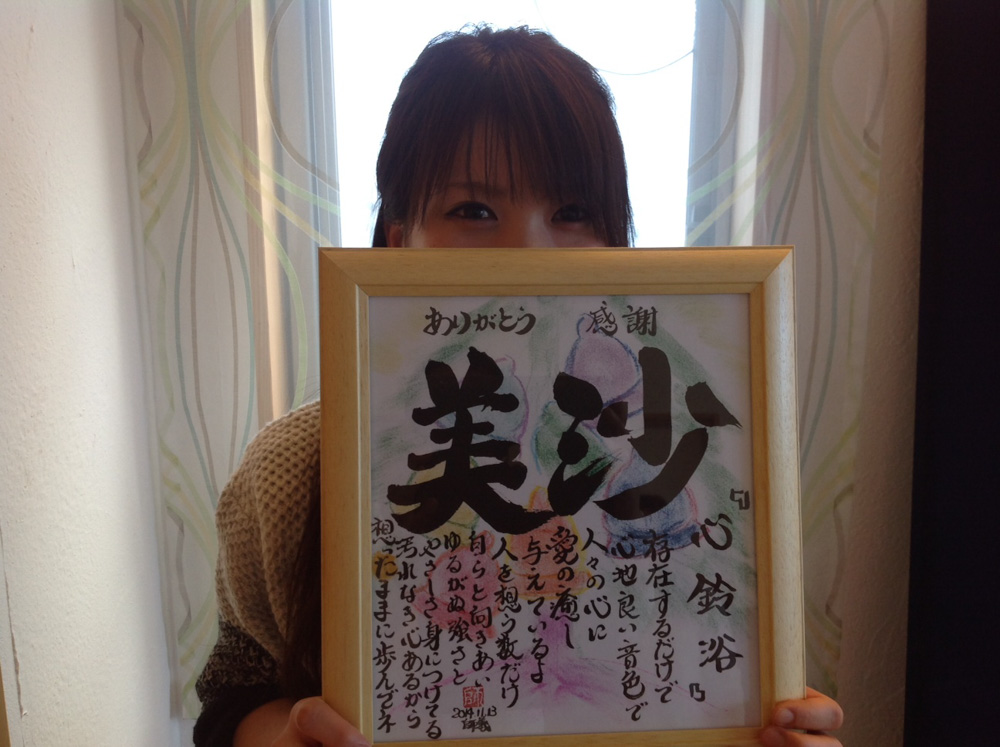 ありがとう　感謝
美沙
『心鈴浴』
存在するだけで
心地良い音色で
人々の心に
愛の癒し
与えているよ
人を想う数だけ
自らと向きあい
ゆるがぬ強さと
やさしさ身につけてる
汚れなき心あるから
想ったままに歩んでネ
2014.11.13